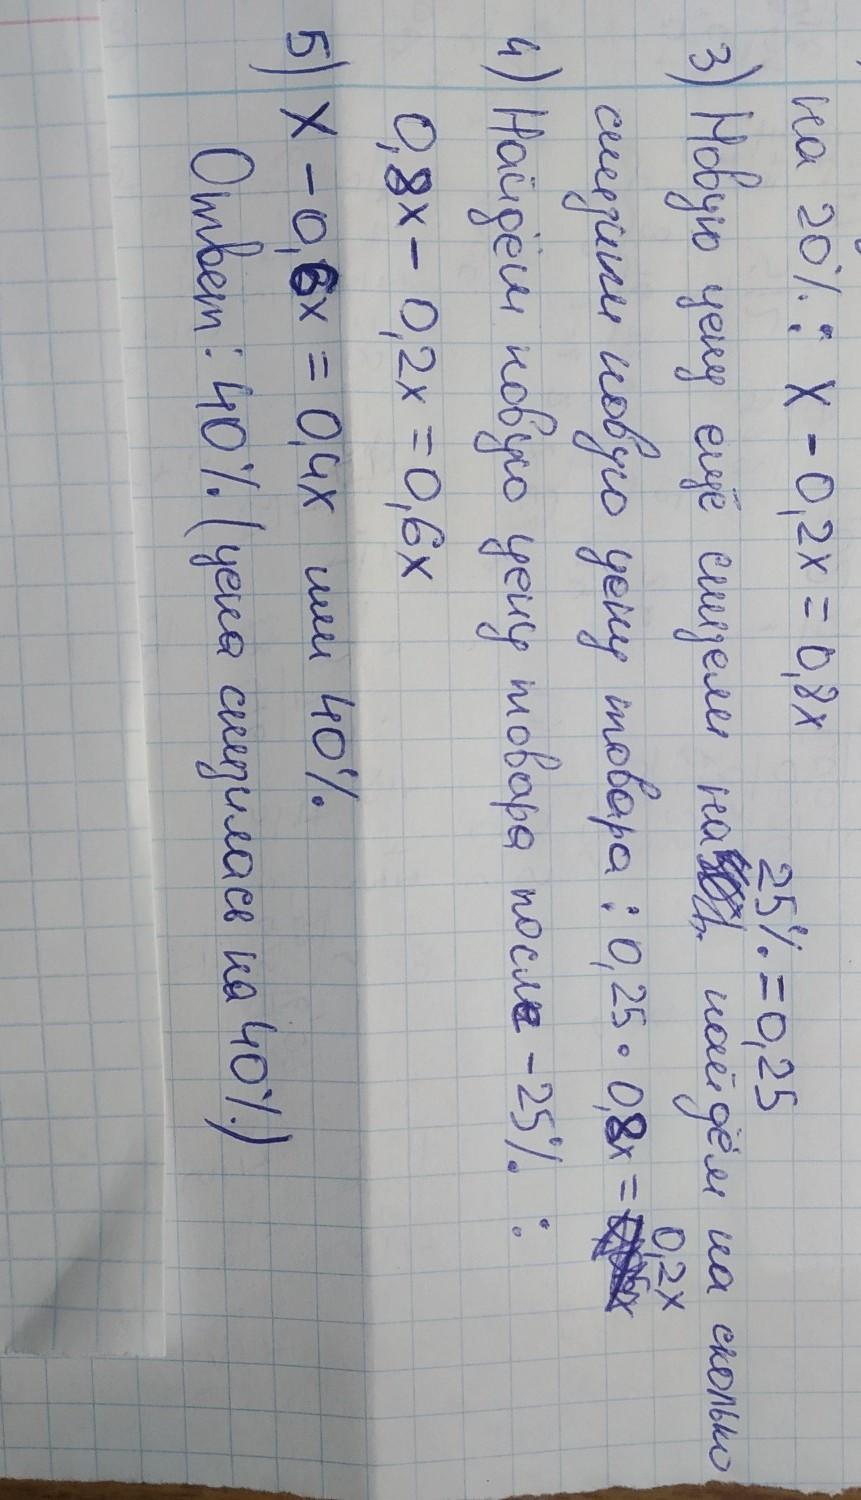 на 20%: х - 0,2х = 0,8х
25% = 0,25
3) Новую цену ещё снизели на, найдём на сколько
снизили новую цену товара: 0,25 · 0,8х = 0,2х
4) Найдём новую цену товара после -25%:
0,8х - 0,2х = 0,6х
5) х - 0,6х = 0,4х или 40%
Ответ: 40% (цена снизилась на 40%)